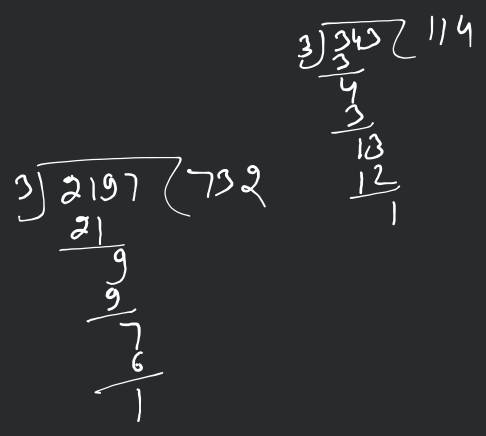 3)343( 114
3
4
3
13
12
1
3)2197(732
21
9
9
7
6
1